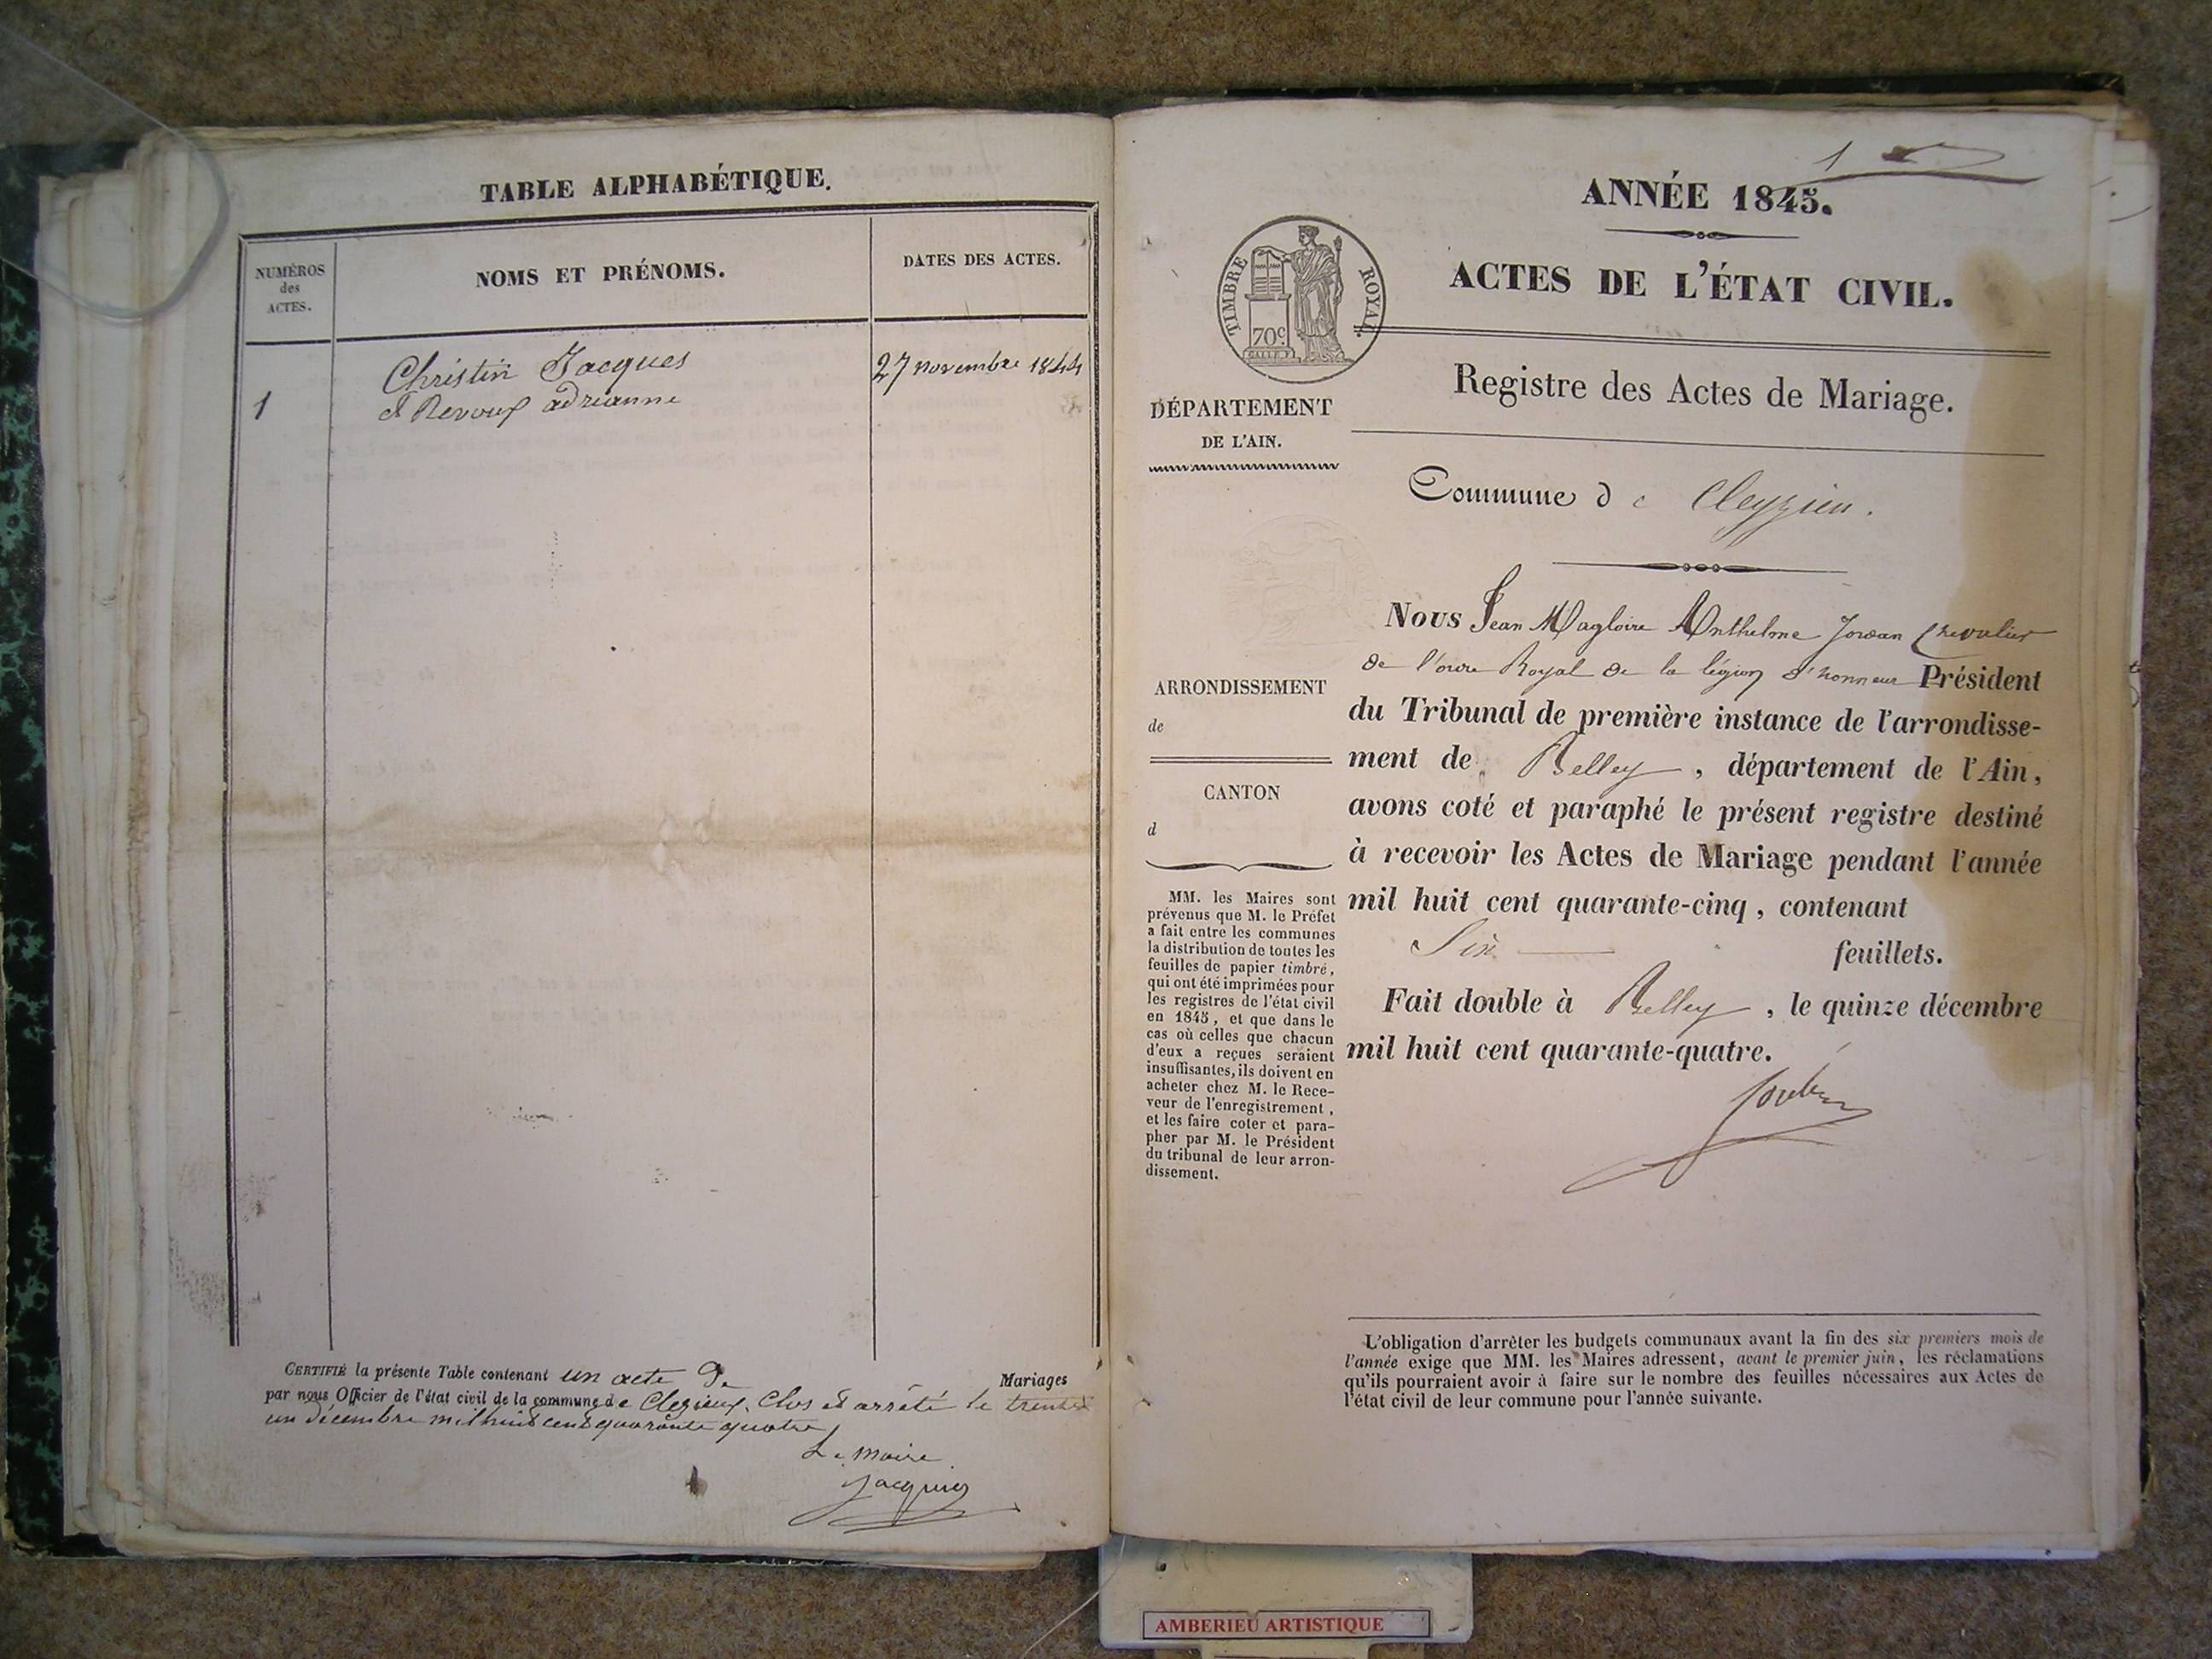 TABLE ALPHABÉTIQUE.
NUMÉROS
des
ACTES.
NOMS ET PRÉNOMS.
DATES DES ACTES.
Christin Jacques
27 novembre 1844
1
et Revoux adrianne
CERTIFIÉ la présente Table contenant un acte De Mariages
par nous Officier de l'état civil de la commune de Clezieux. Clos et arrêté le trente
un décembre mil huit cent quarante quatre
Le maire
Jacquin
1
ANNÉE 1845.
ACTES DE L'ÉTAT CIVIL.
TIMBRE ROYAL.
70c
Registre des Actes de Mariage.
DÉPARTEMENT
DE L'AIN.
Commune de Cleyzieu.
Nous Jean Magloire Anthelme Jordan Chevalier
de l'ordre Royal de la légion d'honneur Président
du Tribunal de première instance de l'arrondisse-
ment de Belley, département de l'Ain,
avons coté et paraphé le présent registre destiné
à recevoir les Actes de Mariage pendant l'année
mil huit cent quarante-cinq, contenant
Six feuillets.
Fait double à Belley, le quinze décembre
mil huit cent quarante-quatre.
ARRONDISSEMENT
de
CANTON
d
MM. les Maires sont
prévenus que M. le Préfet
a fait entre les communes
la distribution de toutes les
feuilles de papier timbré,
qui ont été imprimées pour
les registres de l'état civil
en 1845, et que dans le
cas où celles que chacun
d'eux a reçues seraient
insuffisantes, ils doivent en
acheter chez M. le Rece-
veur de l'enregistrement,
et les faire coter et para-
pher par M. le Président
du tribunal de leur arron-
dissement.
L'obligation d'arrêter les budgets communaux avant la fin des six premiers mois de
l'année exige que MM. les Maires adressent, avant le premier juin, les réclamations
qu'ils pourraient avoir à faire sur le nombre des feuilles nécessaires aux Actes de
l'état civil de leur commune pour l'année suivante.
AMBERIEU ARTISTIQUE